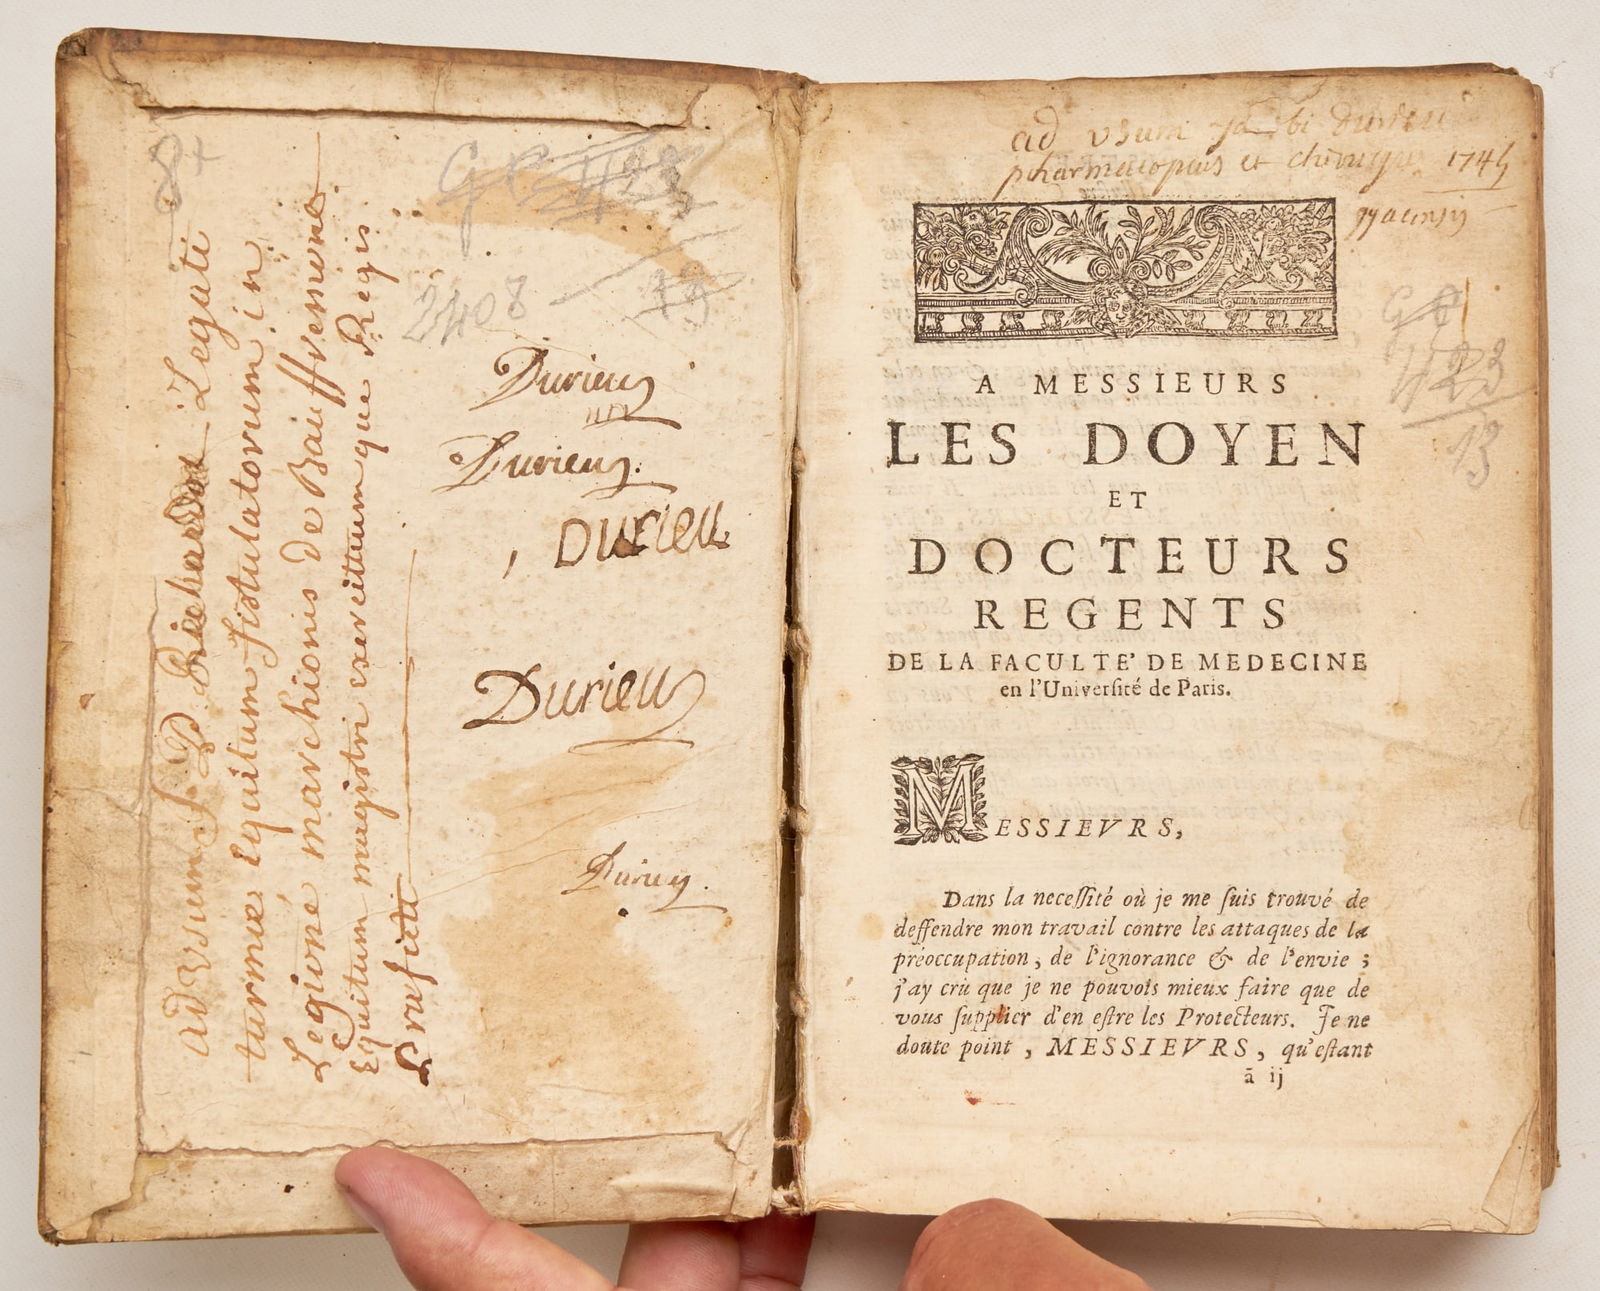 ad Usum J. P. Richardot Legati
turmæ Equitum fistulatorum in
Legione marchionis de Bauffremont
Equitum magistri exercituumque Regis
Præfecti
2408
13
Durieu
Durieu
Durieu
Durieu
Durieu
ad usum Jacobi durieu
pharmacopeus et chirurgus 1745
A MESSIEURS
LES DOYEN
ET
DOCTEURS
REGENTS
DE LA FACULTE' DE MEDECINE
en l'Université de Paris.
MESSIEVRS,
Dans la necessité où je me suis trouvé de
deffendre mon travail contre les attaques de la
préoccupation, de l'ignorance & de l'envie ;
j'ay crû que je ne pouvois mieux faire que de
vous supplier d'en estre les Protecteurs. Je ne
doute point, MESSIEVRS, qu'estant
ā ij
1123
13